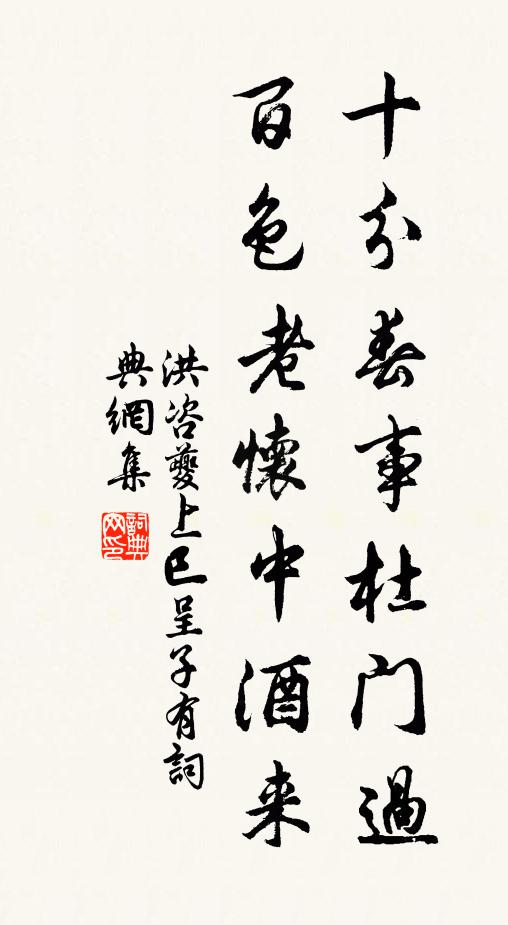 十分春事杜門過
百色老懷中酒来
洪咨夔上巳呈子有詞
典網集
詞典
网印